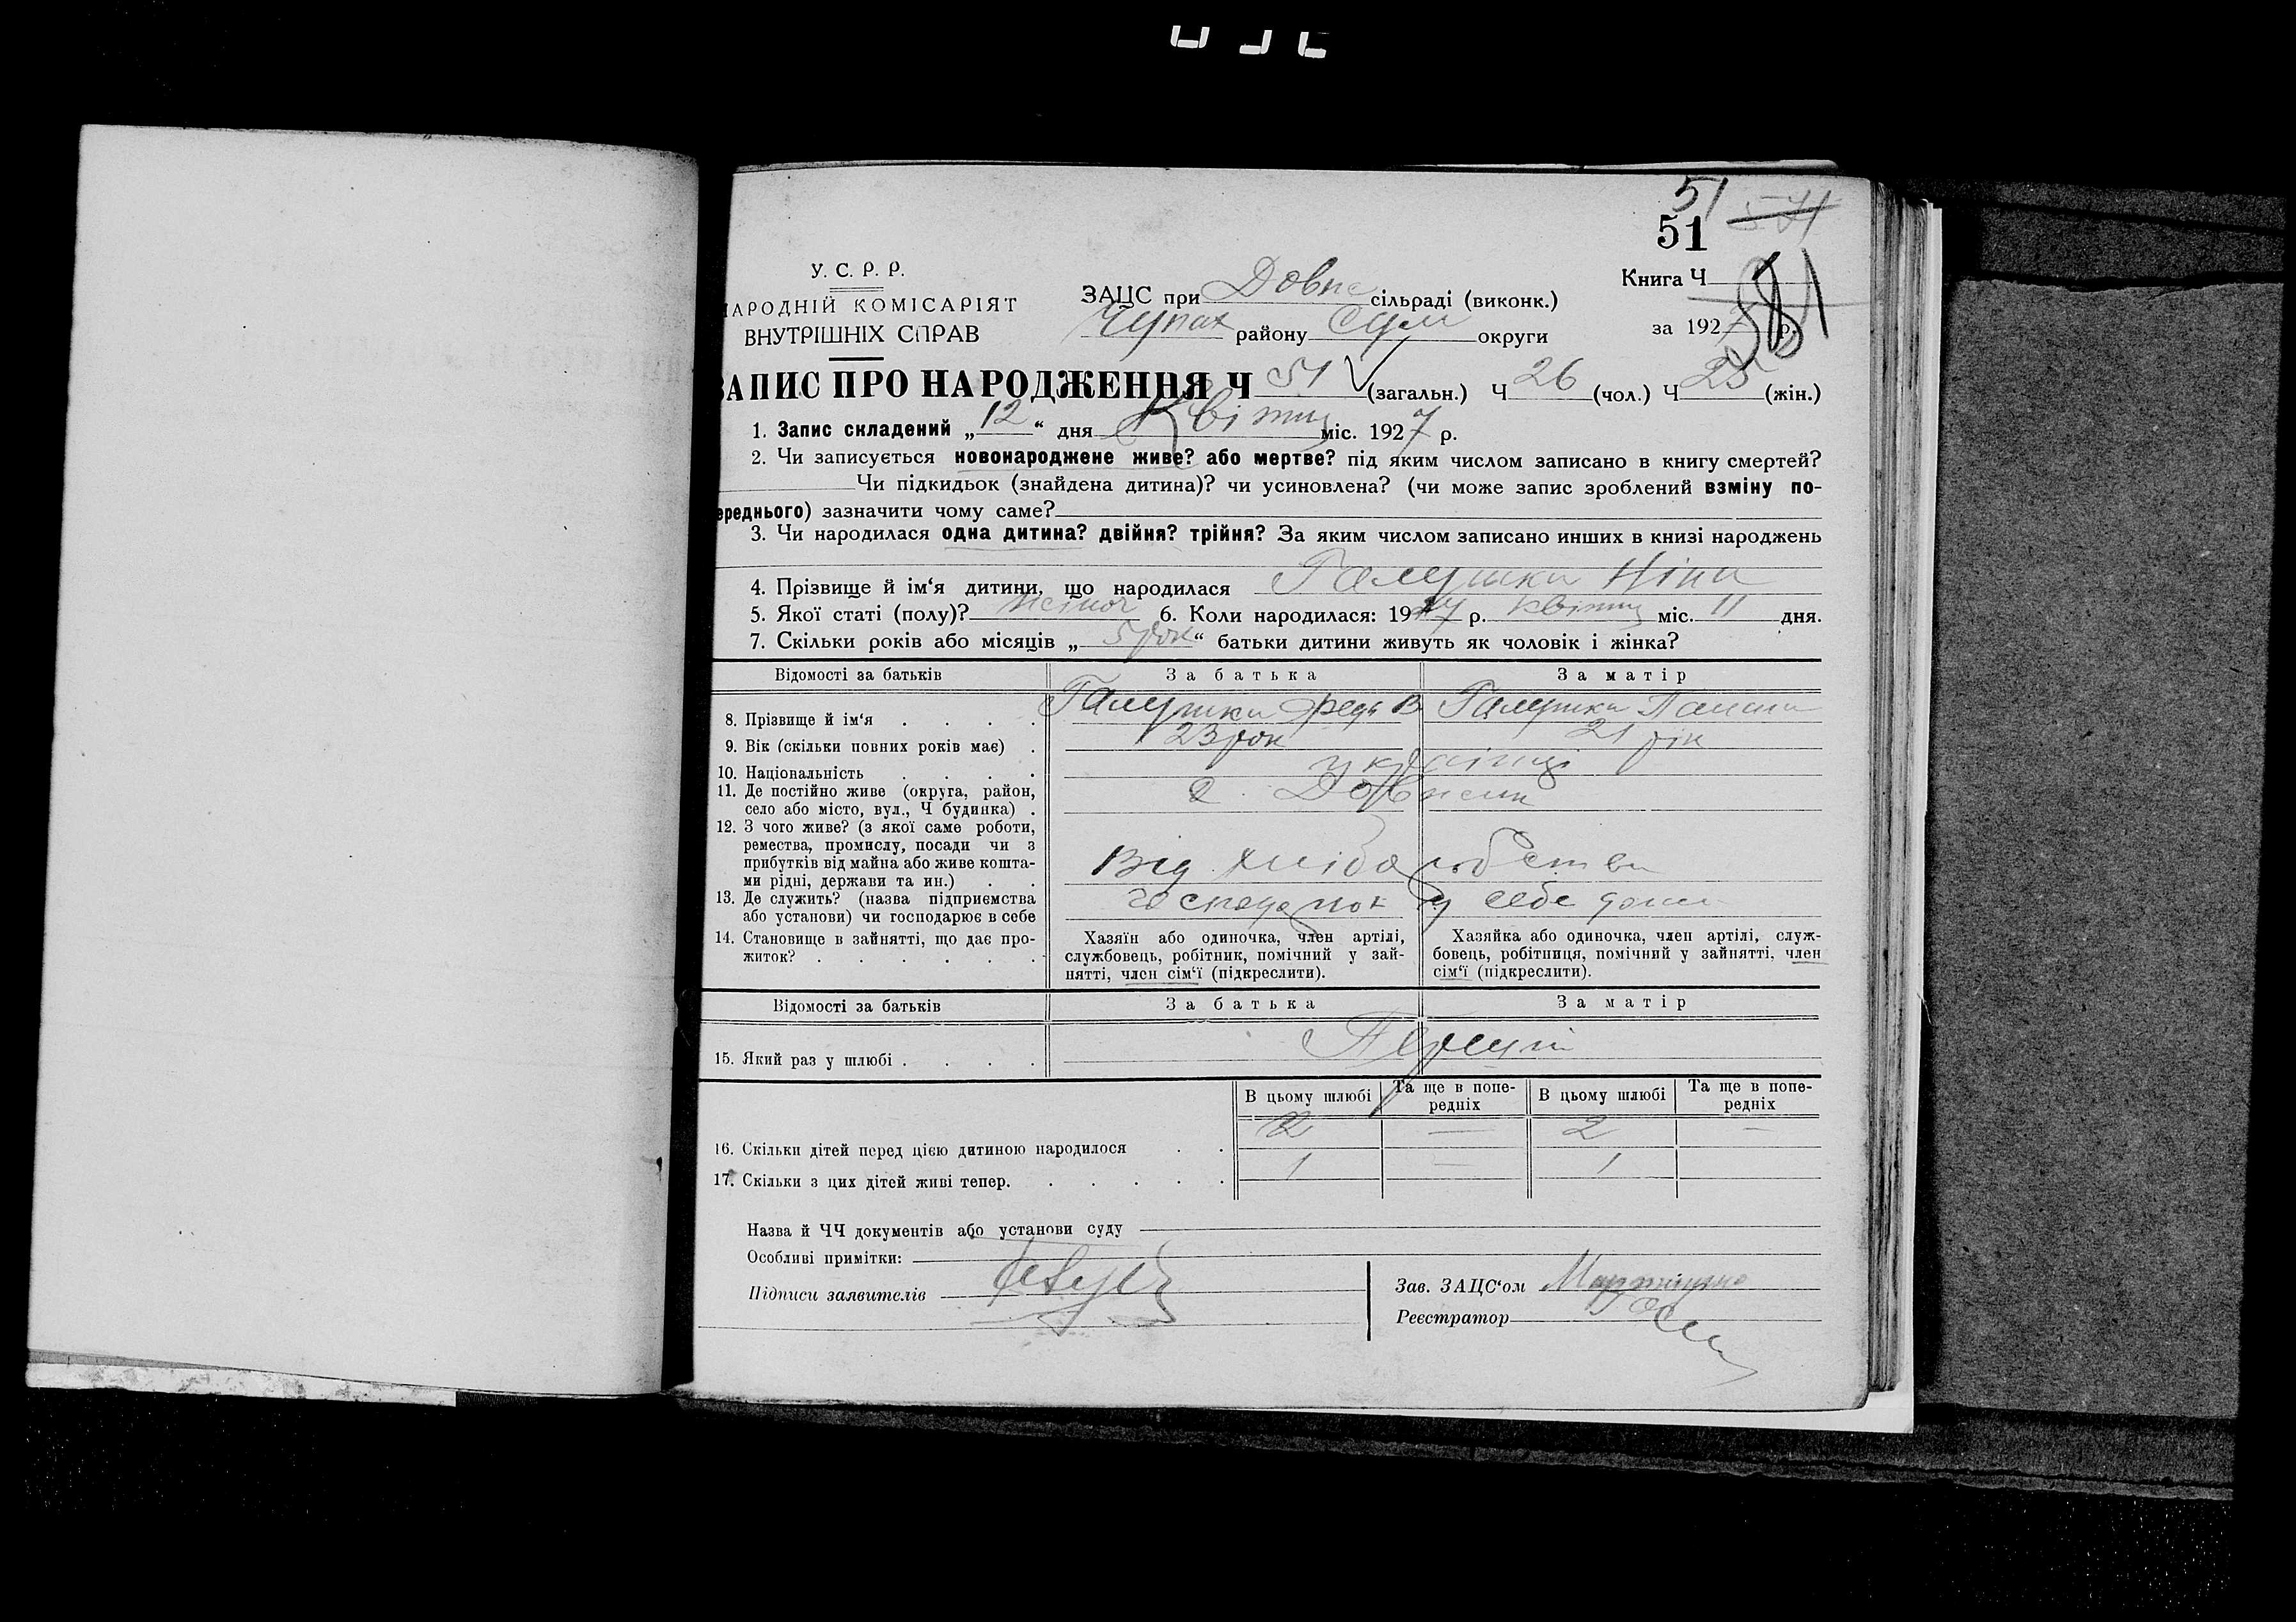 51
51 571
У. С. Р. Р.
НАРОДНІЙ КОМІСАРІЯТ
ВНУТРІШНІХ СПРАВ
ЗАЦС при Довж сільраді (виконк.)
Чупах району Сум округи
Книга Ч
581
за 1927 р.
ЗАПИС ПРО НАРОДЖЕННЯ Ч 51 (загальн.) Ч 26 (чол.) Ч 25 (жін.)
1. Запис складений „12“ дня Квітня міс. 1927 р.
2. Чи записується новонароджене живе? або мертве? під яким числом записано в книгу смертей?
Чи підкидьок (знайдена дитина)? чи усиновлена? (чи може запис зроблений взміну по-
ереднього) зазначити чому саме?
3. Чи народилася одна дитина? двійня? трійня? За яким числом записано инших в книзі народжень
4. Прізвище й ім‘я дитини, що народилася Галушка Ніна
5. Якої статі (полу)? жіноч 6. Коли народилася: 1927 р. квітня міс. 11 дня.
7. Скільки років або місяців „5 рок“ батьки дитини живуть як чоловік і жінка?
Відомості за батьків За батька За матір
8. Прізвище й ім‘я Галушка В Галушка
9. Вік (скільки повних років має) 23 рок 21 рік
10. Національність українці
11. Де постійно живе (округа, район,
село або місто, вул., Ч будинка)
с.
12. З чого живе? (з якої саме роботи,
ремества, промислу, посади чи з
прибутків від майна або живе кошта-
ми рідні, держави та ин.)
Від хліборобства
13. Де служить? (назва підприємства
або установи) чи господарює в себе
у себе дома
14. Становище в зайнятті, що дає про-
житок?
Хазяїн або одиночка, член артілі,
службовець, робітник, помічний у зай-
нятті, член сім‘ї (підкреслити).
Хазяйка або одиночка, член артілі, служ-
бовець, робітниця, помічний у зайнятті, член
сім‘ї (підкреслити).
Відомості за батьків За батька За матір
15. Який раз у шлюбі Перший
В цьому шлюбі Та ще в попе-
редніх В цьому шлюбі Та ще в попе-
редніх
16. Скільки дітей перед цією дитиною народилося 2 — 2 —
17. Скільки з цих дітей живі тепер. 1 — 1
Назва й ЧЧ документів або установи суду
Особливі примітки:
Підписи заявителів
Зав. ЗАЦС‘ом
Реєстратор